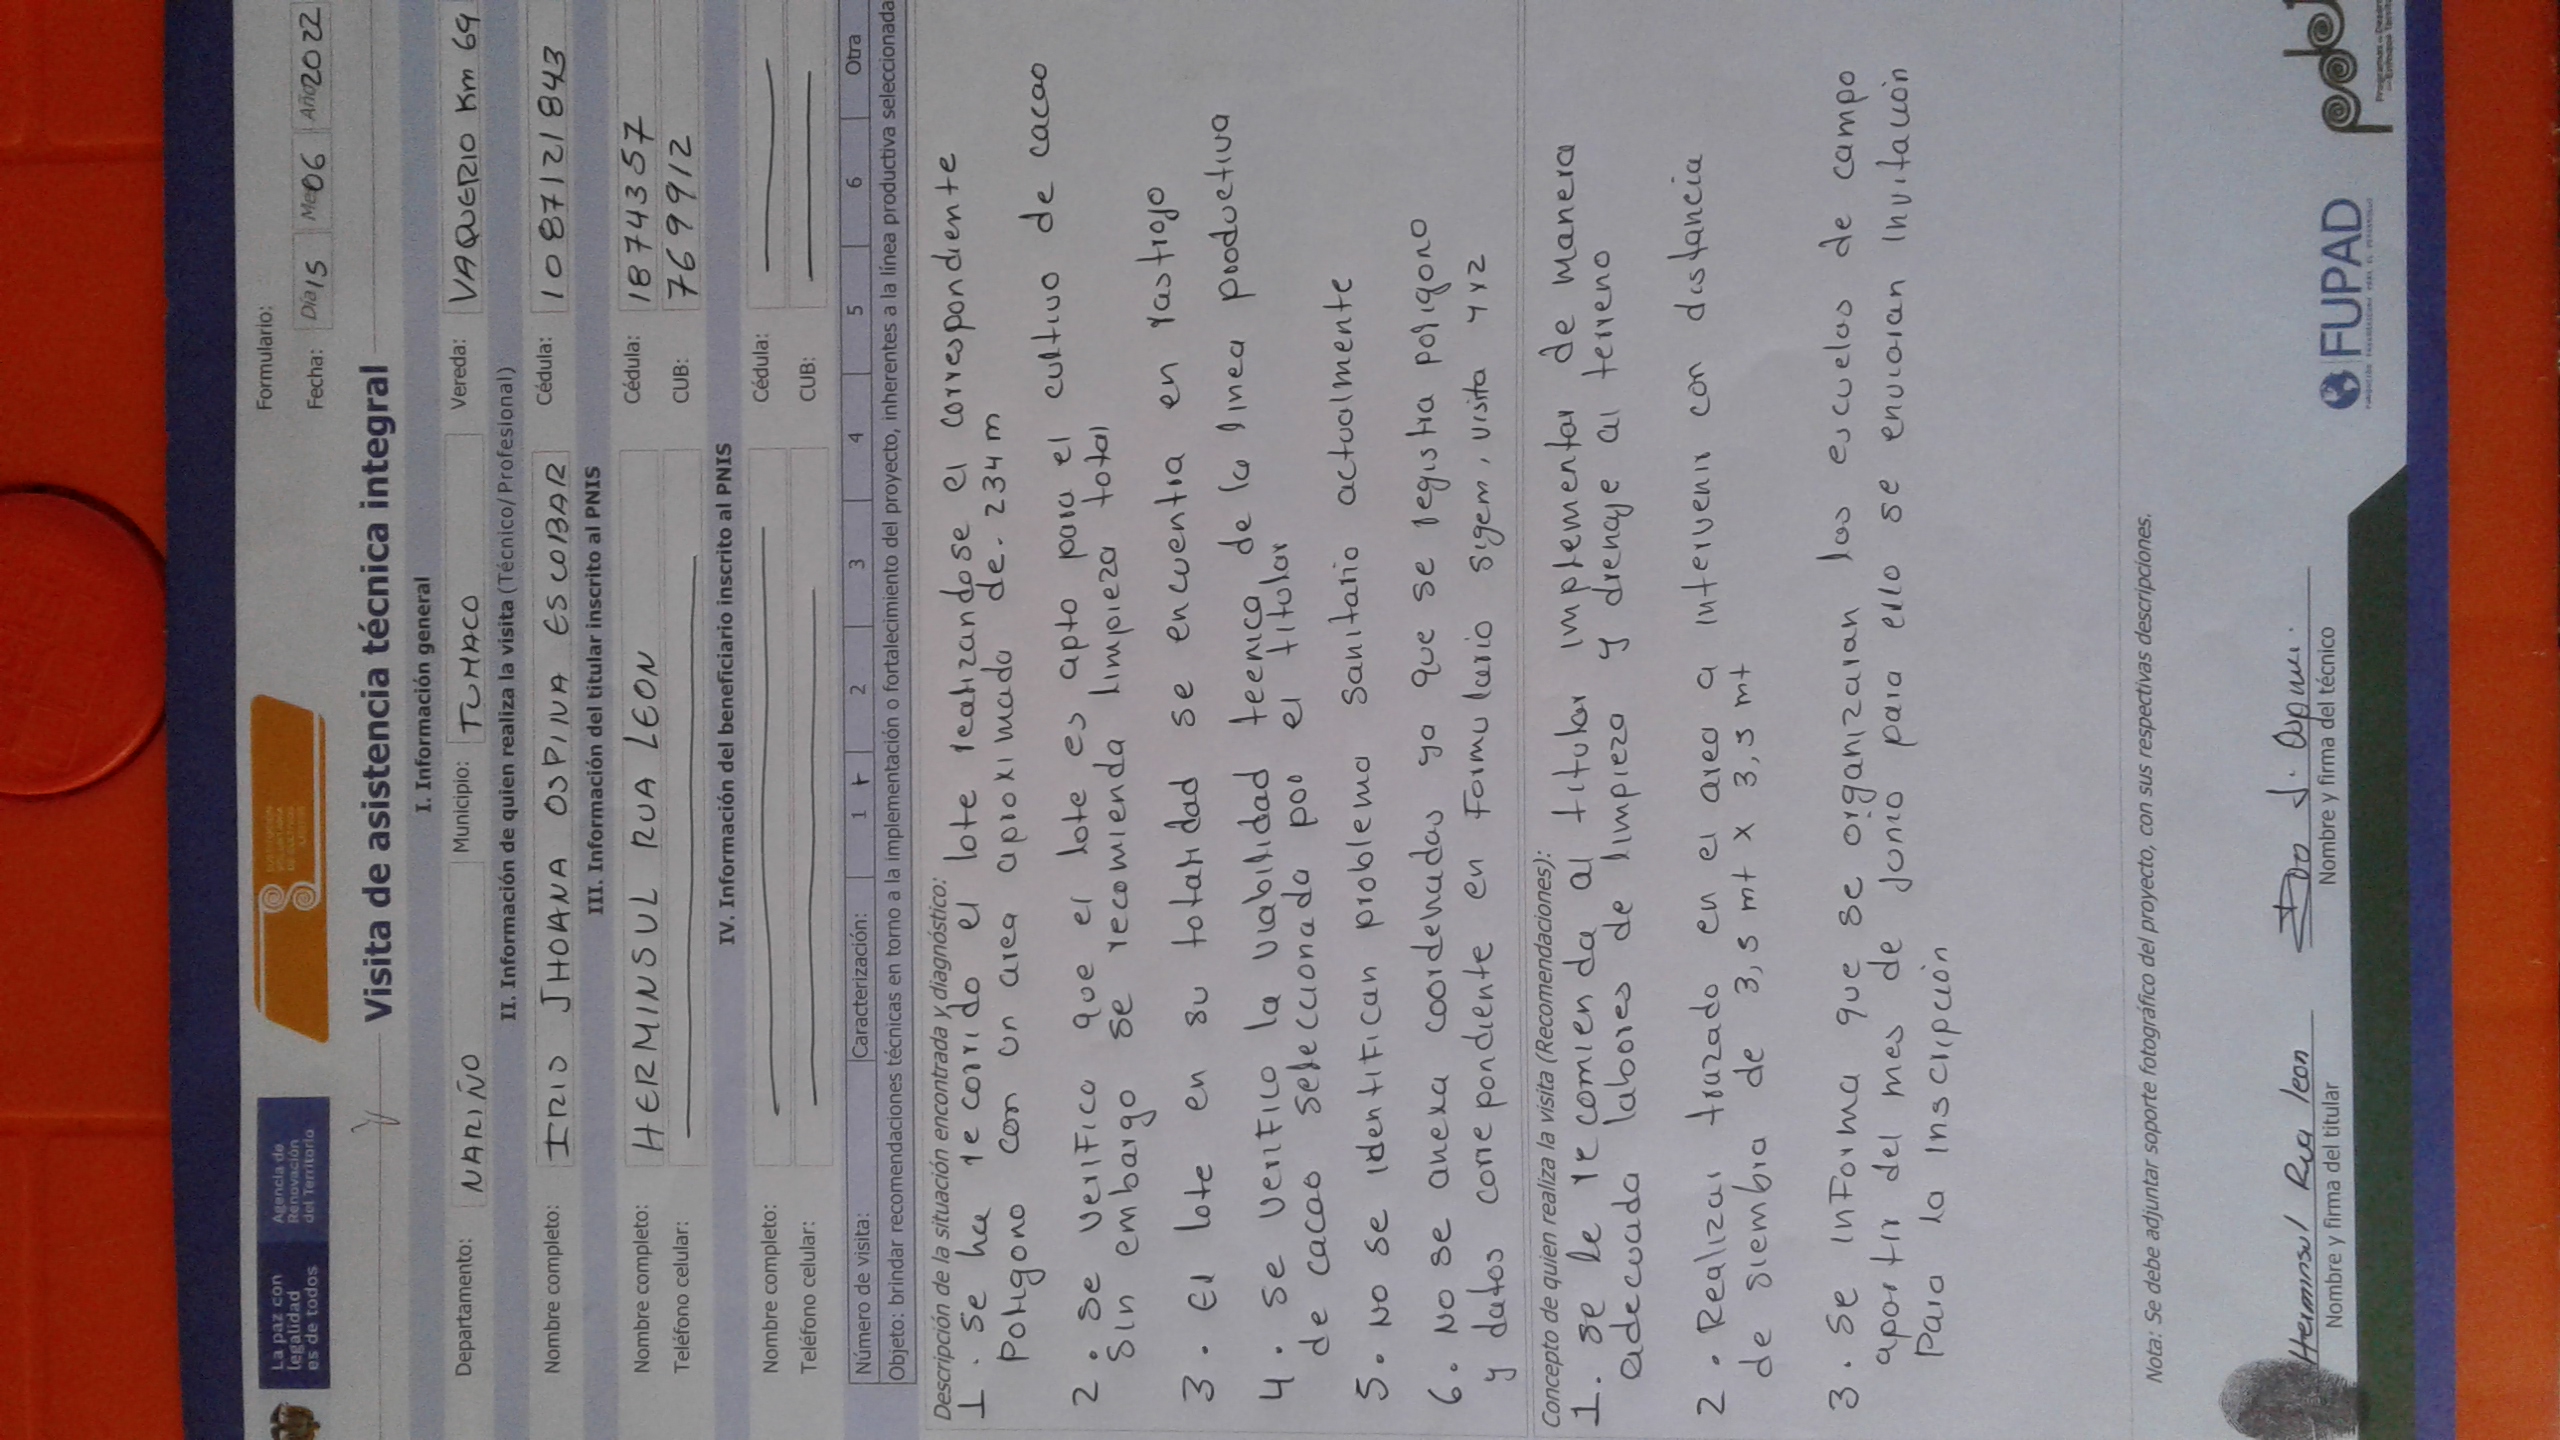 La paz con
legalidad
es de todos
Agencia de
Renovación
del Territorio
Formulario:
Fecha: Día 15 Me 06 Año 2022
Visita de asistencia técnica integral
I. Información general
Departamento: NARIÑO Municipio: TUMACO Vereda: VAQUERIO Km 69
II. Información de quien realiza la visita (Técnico/Profesional)
Nombre completo: IRIS JHOANA OSPINA ESCOBAR Cédula: 1087121843
III. Información del titular inscrito al PNIS
Nombre completo: HERMINSUL RUA LEON Cédula: 1874357
Teléfono celular: CUB: 769912
IV. Información del beneficiario inscrito al PNIS
Nombre completo: Cédula:
Teléfono celular: CUB:
Número de visita: Caracterización: 1 + 2 3 4 5 6 Otra
Objeto: brindar recomendaciones técnicas en torno a la implementación o fortalecimiento del proyecto, inherentes a la línea productiva seleccionada
Descripción de la situación encontrada y diagnóstico:
1. Se ha recorrido el lote realizandose el correspondiente
Poligono con un area aproximada de. 234 m
2. Se verifico que el lote es apto para el cultivo de cacao
sin embargo se recomienda limpieza total
3. El lote en su totalidad se encuentra en rastrojo
4. Se verifico la viabilidad tecnica de la linea productiva
de cacao seleccionada por el titular
5. No se identifican problema sanitario actualmente
6. No se anexa coordenadas ya que se registra poligono
y datos correpondiente en Formulario sigem, visita 4x2
Concepto de quien realiza la visita (Recomendaciones):
1. Se le recomienda al titular implementar de manera
adecuada labores de limpieza y drenaje al terreno
2. Realizar trazado en el area a intervenir con distancia
de siembra de 3,5 mt x 3,5 mt
3. Se informa que se organizaran las escuelas de campo
apartir del mes de Junio para ello se enviaran invitación
Para la inscripción
Nota: Se debe adjuntar soporte fotográfico del proyecto, con sus respectivas descripciones.
Herminsul Rua leon
Nombre y firma del titular
Nombre y firma del técnico
FUPAD